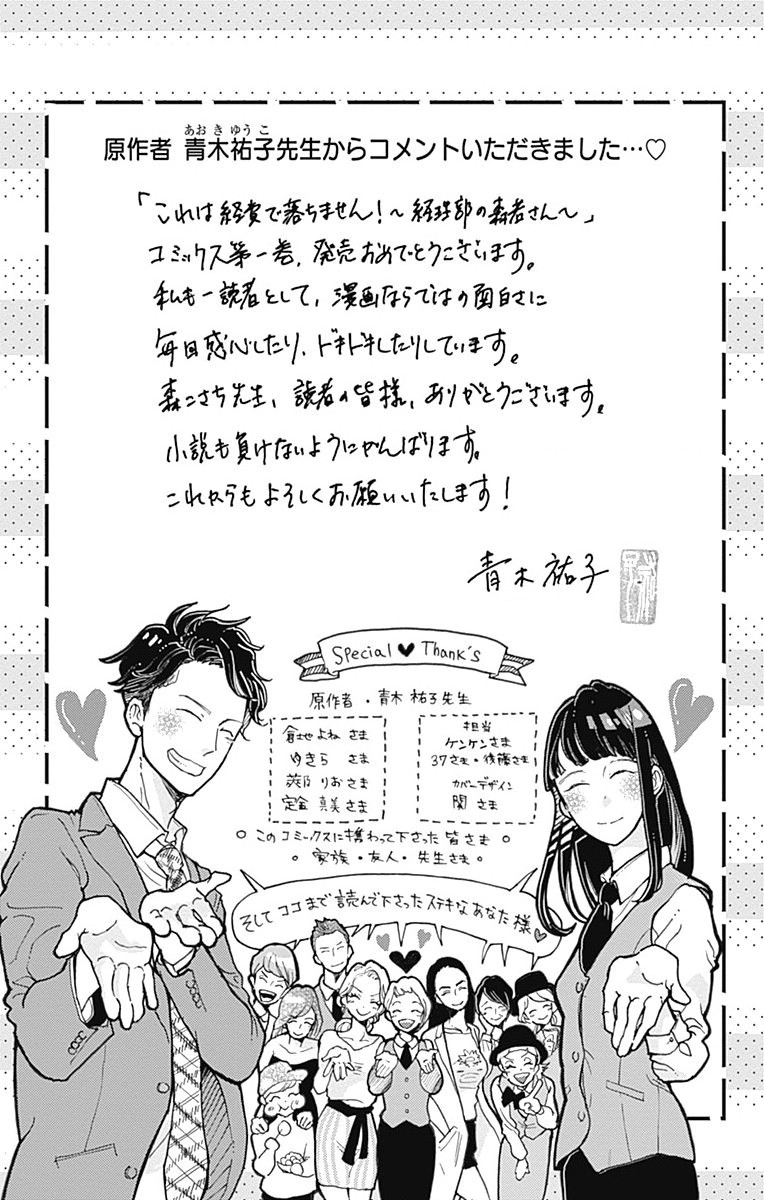 あおきゆうこ
原作者 青木祐子先生からコメントいただきました…♡
「これは経費で落ちません!～経理部の森若さん～」
コミックス第一巻、発売おめでとうございます。
私も一読者として、漫画ならではの面白さに
毎回感心したり、ドキドキしたりしています。
森こさち先生、読者の皆様、ありがとうございます。
小説も負けないようにがんばります。
これからもよろしくお願いいたします!
青木祐子
Special ♥ Thank's
原作者・青木祐子先生
倉地よね さま
ゆきら さま
りおさま
定金 真美さま
担当
ケンケンさま
37さま・後藤さま
カバーデザイン
関 さま
○このコミックスに携わって下さった皆さま○
・家族・友人・先生さま・
そしてココまで読んで下さったステキなあなた様♥